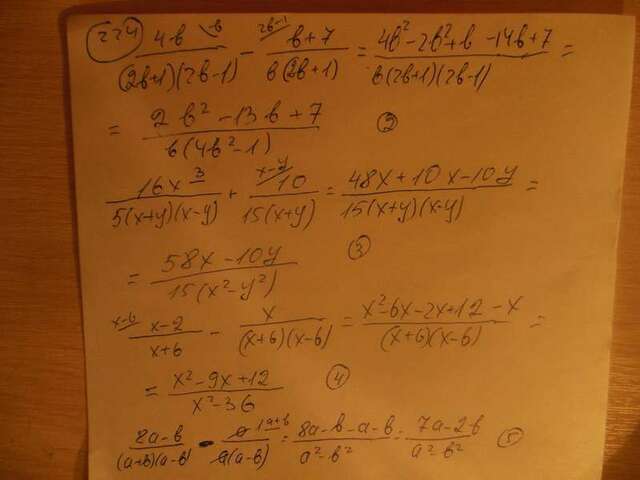 224 4b \b / (2b+1)(2b-1) - 2b-1/ b+7 / b(2b+1) = 4b²-2b²+b-14b+7 / b(2b+1)(2b-1) =
= 2b²-13b+7 / b(4b²-1) ②
16x 3/ / 5(x+y)(x-y) + x-y/ 10 / 15(x+y) = 48x+10x-10y / 15(x+y)(x-y) =
= 58x-10y / 15(x²-y²) ③
x-6/ x-2 / x+6 - x / (x+6)(x-6) = x²-6x-2x+12-x / (x+6)(x-6) =
= x²-9x+12 / x²-36 ④
8a-b / (a+b)(a-b) - a 1a+b / a(a-b) = 8a-b-a-b / a²-b² = 7a-2b / a²-b² ⑤